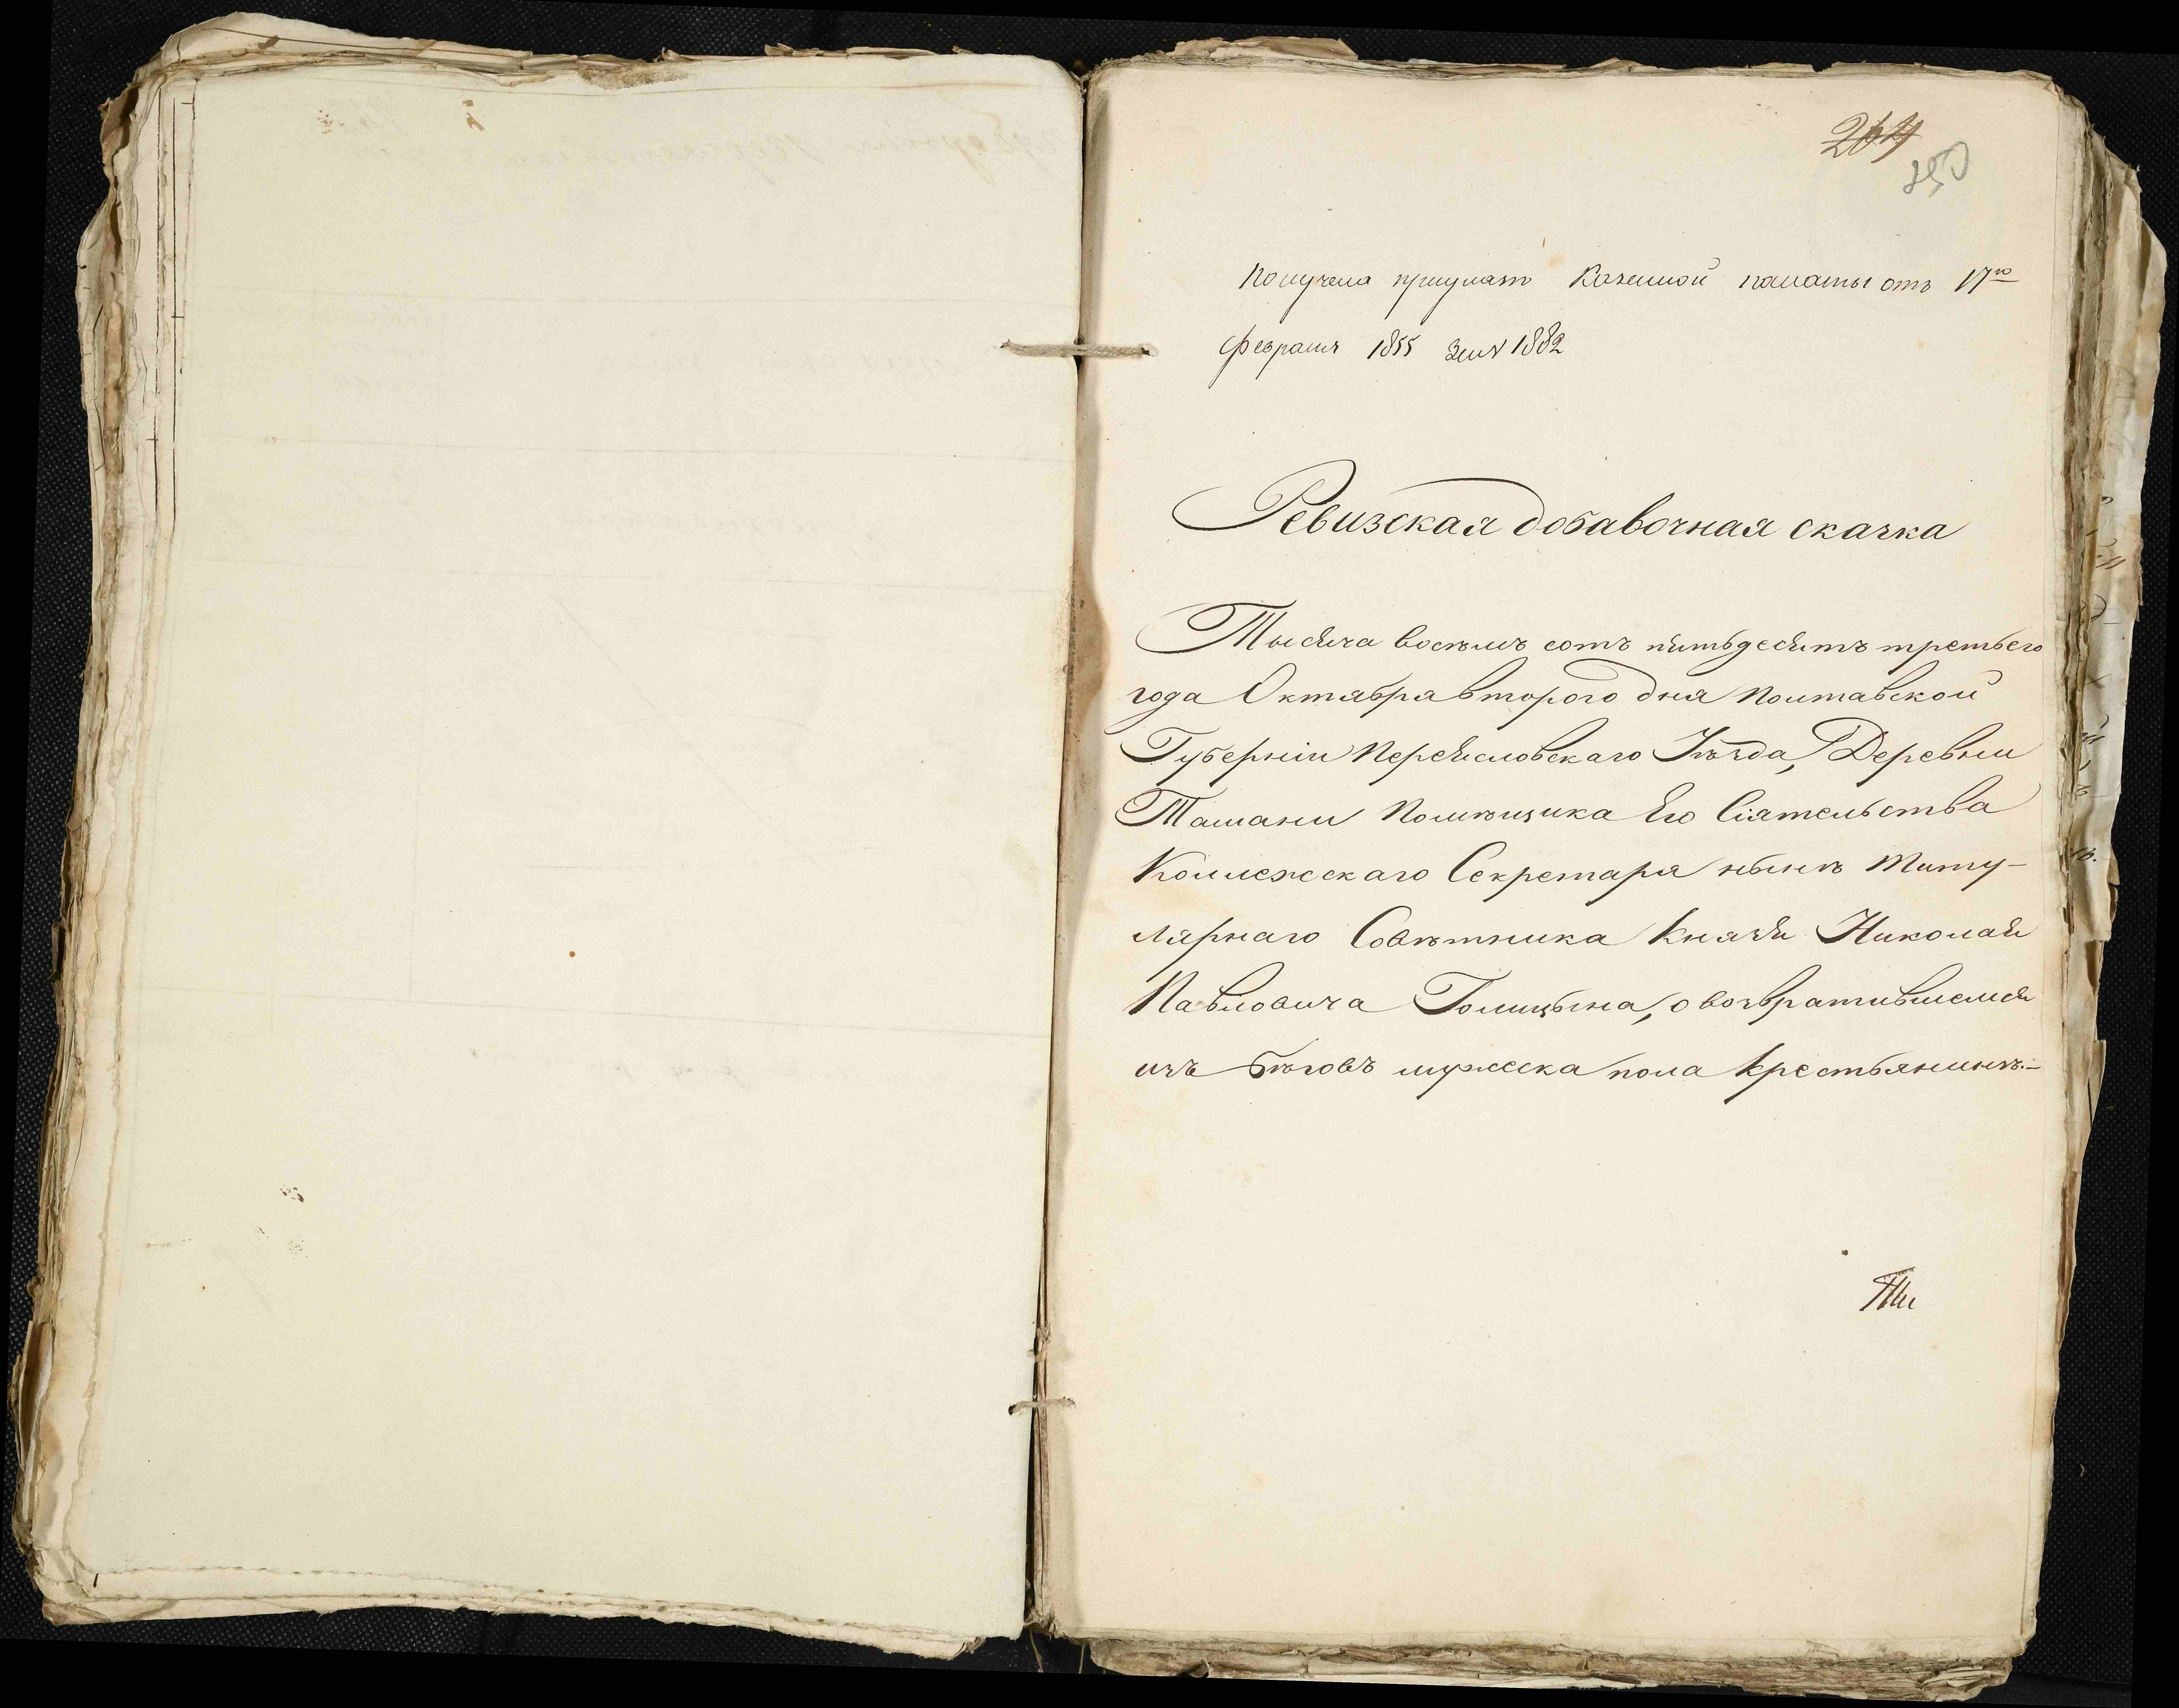 264
250
Получена при указѣ Казенной палаты отъ 17го
февраля 1855 за № 1882
Ревизская добавочная сказка
Тысяча восемь сотъ пятьдесятъ третьего
года Октября второго дня Полтавской
Губерніи Переясловскаго Уѣзда, Деревни
Ташани Помѣщика Его Сіятельства
Коллежскаго Секретаря нынѣ Титу-
лярнаго Совѣтника Князя Николая
Павловича Голицына, о возвратившемся
изъ бѣговъ мужеска пола крестьянинѣ.-